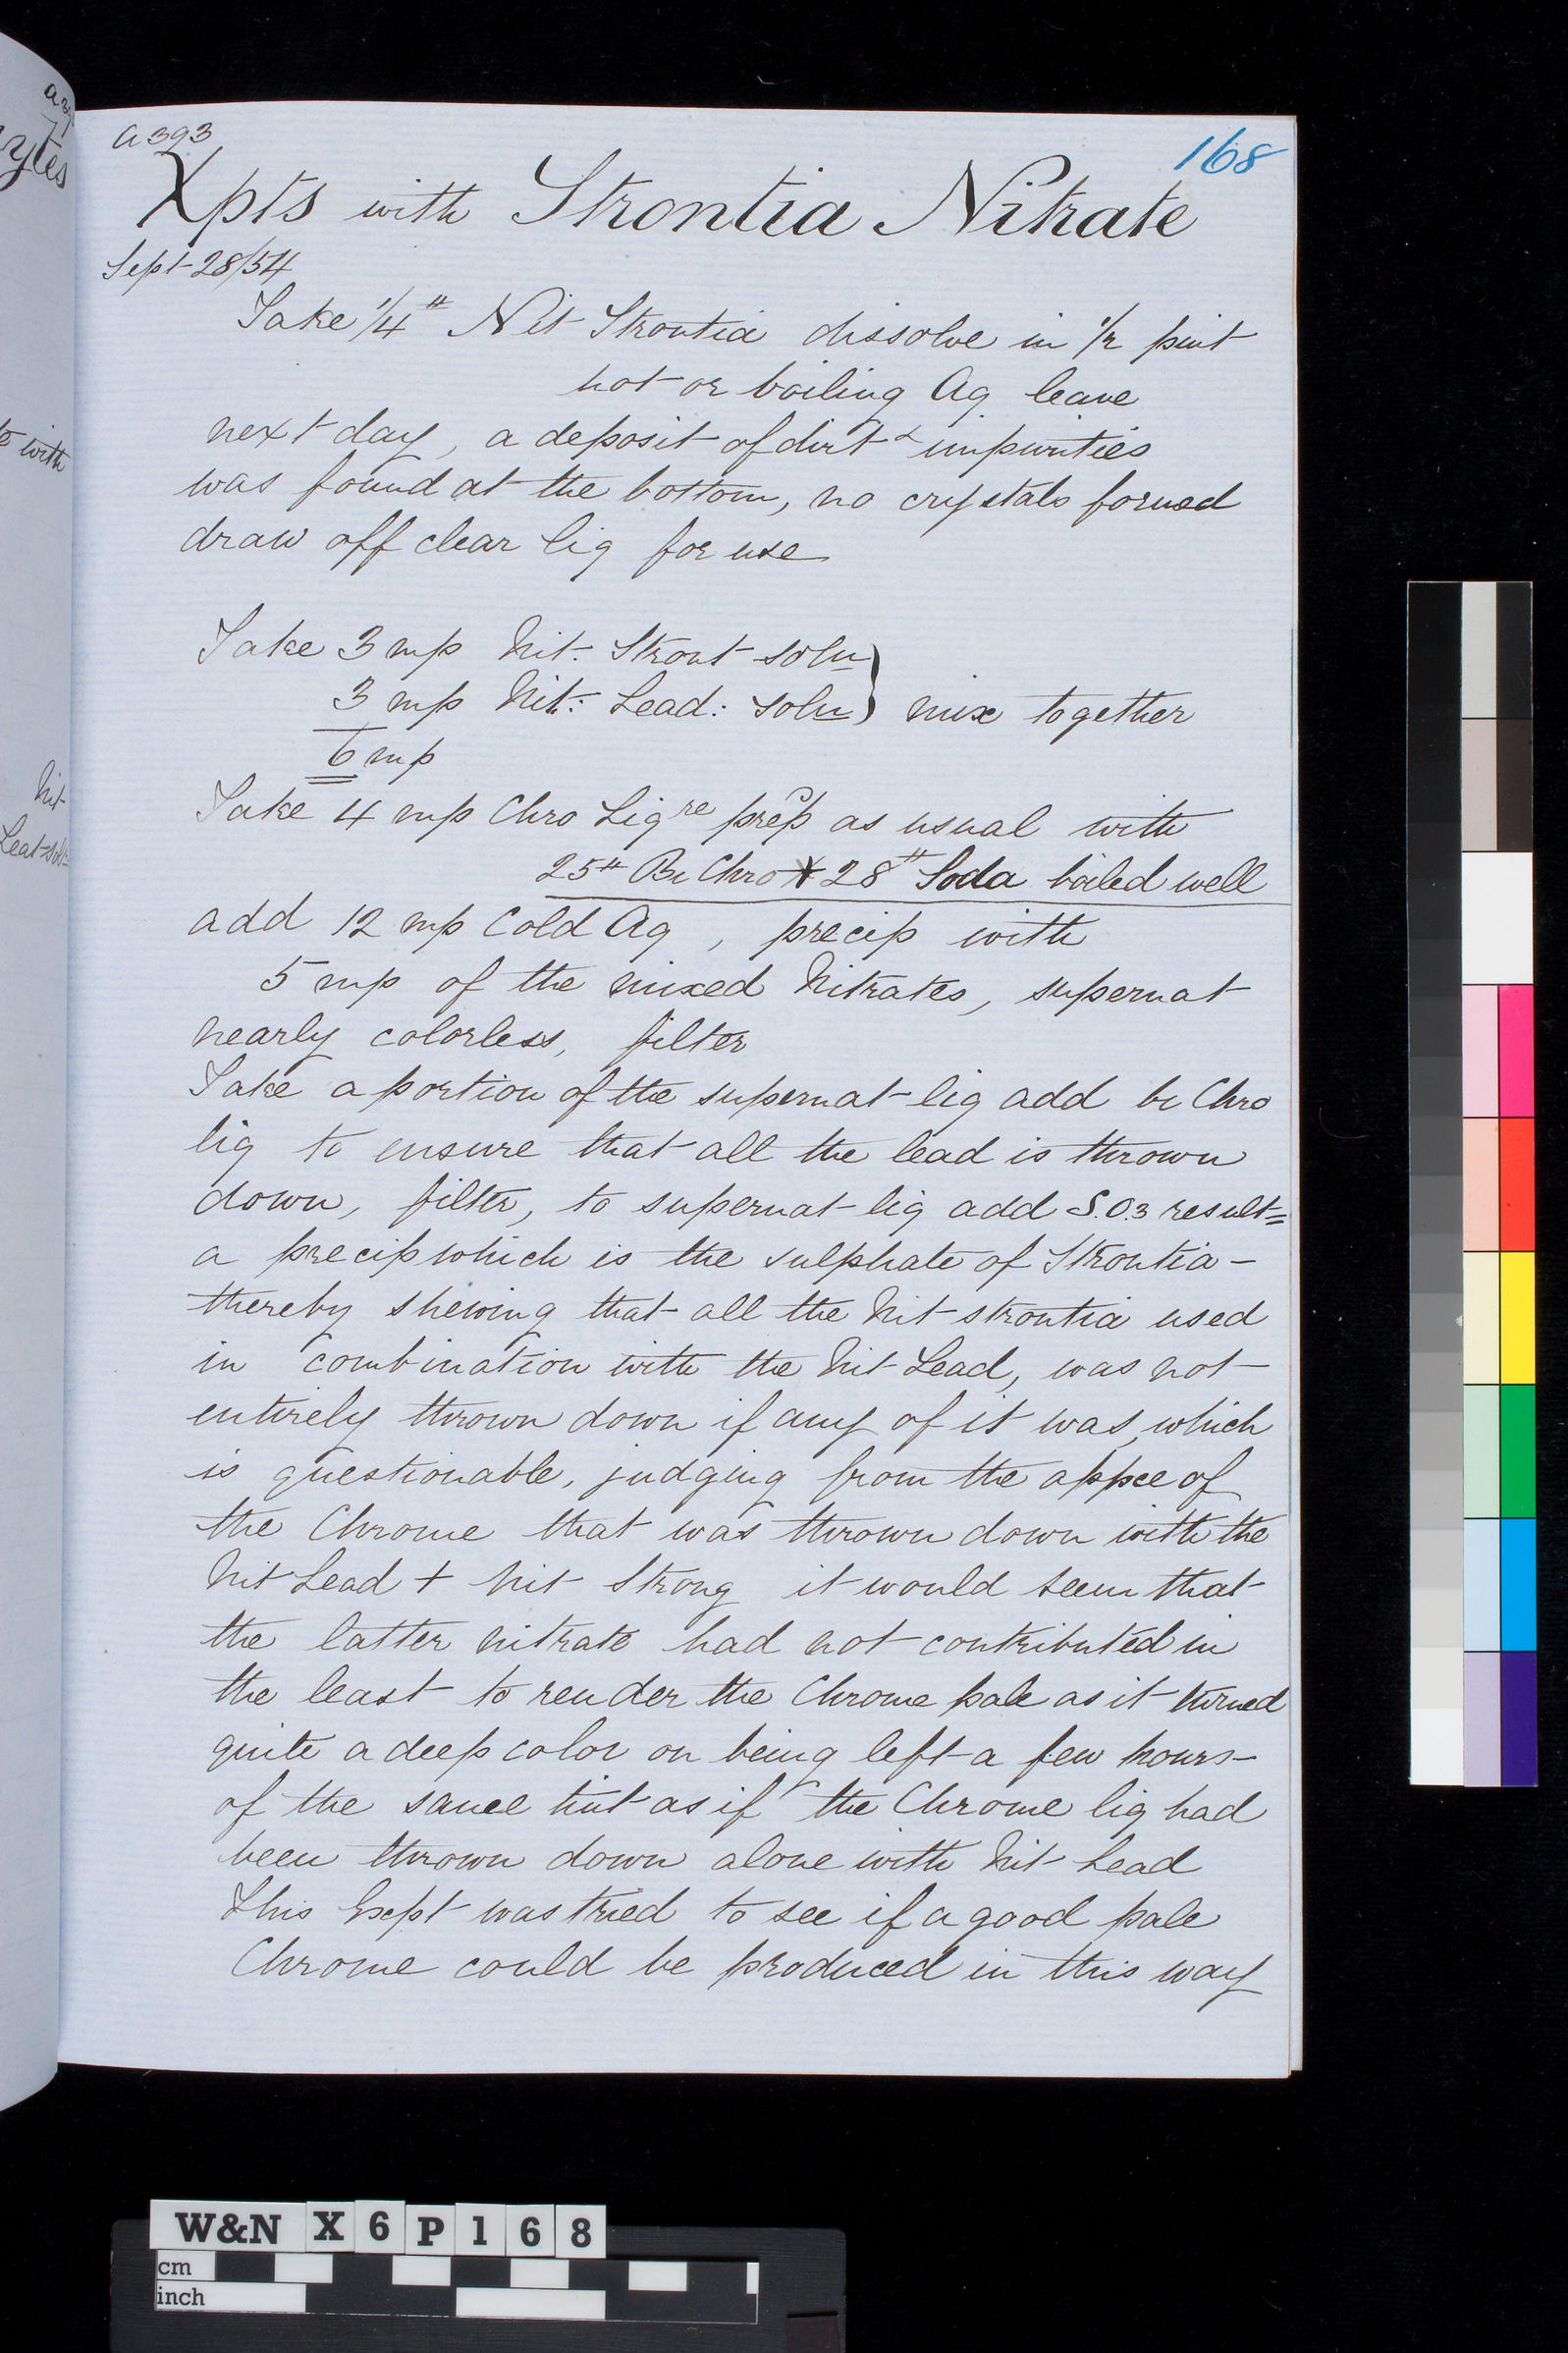 a393
168
Xpts with Strontia Nitrate
Sept 28/54
Take 1/4 # Nit Strontia dissolve in 1/2 pint
hot or boiling Aq leave
next day, a deposit of dirt & impurities
was found at the bottom, no crystals formed
draw off clear liq for use
Take 3 mp Nit: Stront solu
3 mp Nit: Lead: solu } mix together
6 mp
Take 4 mp Chro Liqre prep as usual with
25# Bi Chro + 28# Soda boiled well
add 12 mp Cold Aq, precip with
5 mp of the mixed Nitrates, supernat
nearly colorless, filter
Take a portion of the supernat liq add bi Chro
liq to ensure that all the lead is thrown
down, filter, to supernat liq add S.O3 result=
a precip which is the sulphate of Strontia -
thereby shewing that all the Nit strontia used
in combination with the Nit Lead, was not
entirely thrown down if any of it was, which
is questionable, judging from the appce of
the Chrome that was thrown down with the
Nit Lead + Nit Strong it would seem that
the latter nitrate had not contributed in
the least to render the Chrome pale as it turned
quite a deep color on being left a few hours -
of the same tint as if the Chrome liq had
been thrown down alone with Nit Lead
This Expt was tried to see if a good pale
Chrome could be produced in this way
to with
Nit
W&N X6P168
cm
inch